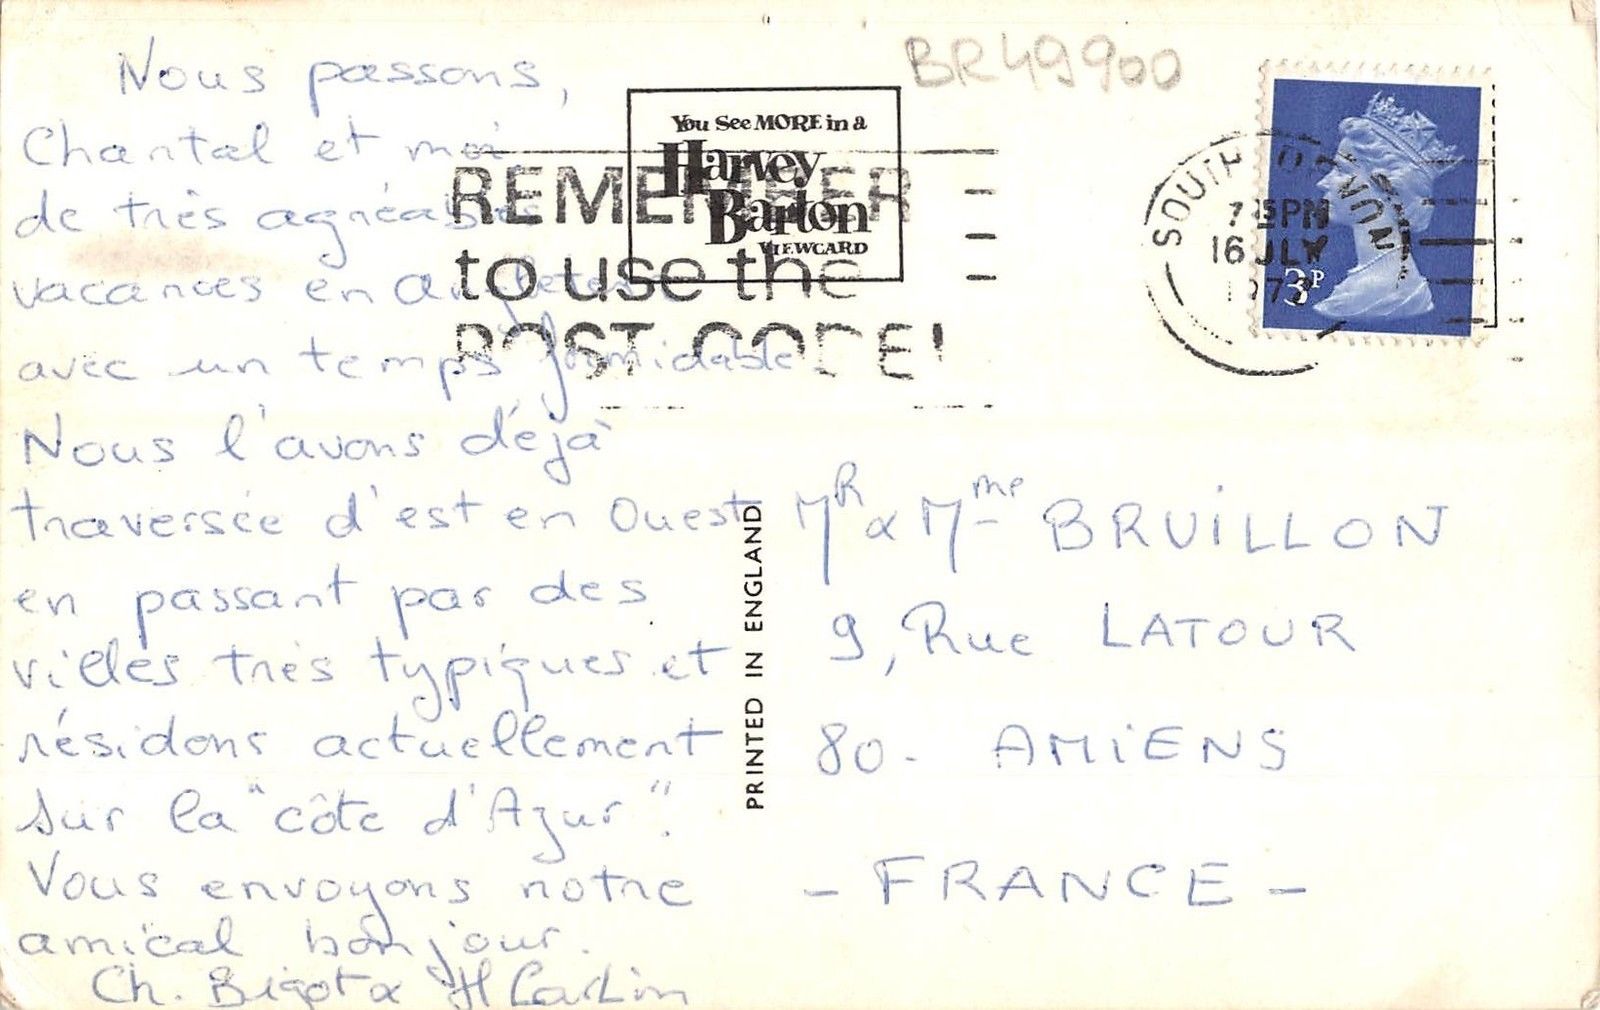 Nous passons,
Chantal et moi
de très agréables
vacances en Angleterre
avec un temps formidable.
Nous l'avons déjà
traversée d'est en Ouest
en passant par des
villes très typiques et
résidons actuellement
sur la "côte d'Azur".
Vous envoyons notre
amical bonjour.
Ch. Bigot &
BR49900
You See MORE in a
Harvey
Barton
VIEWCARD
REMEMBER
to use the
POST CODE!
SOUTH
PM
16 JLY
3P
PRINTED IN ENGLAND
MR & Mme BRUILLON
9, Rue LATOUR
80 - AMIENS
- FRANCE -